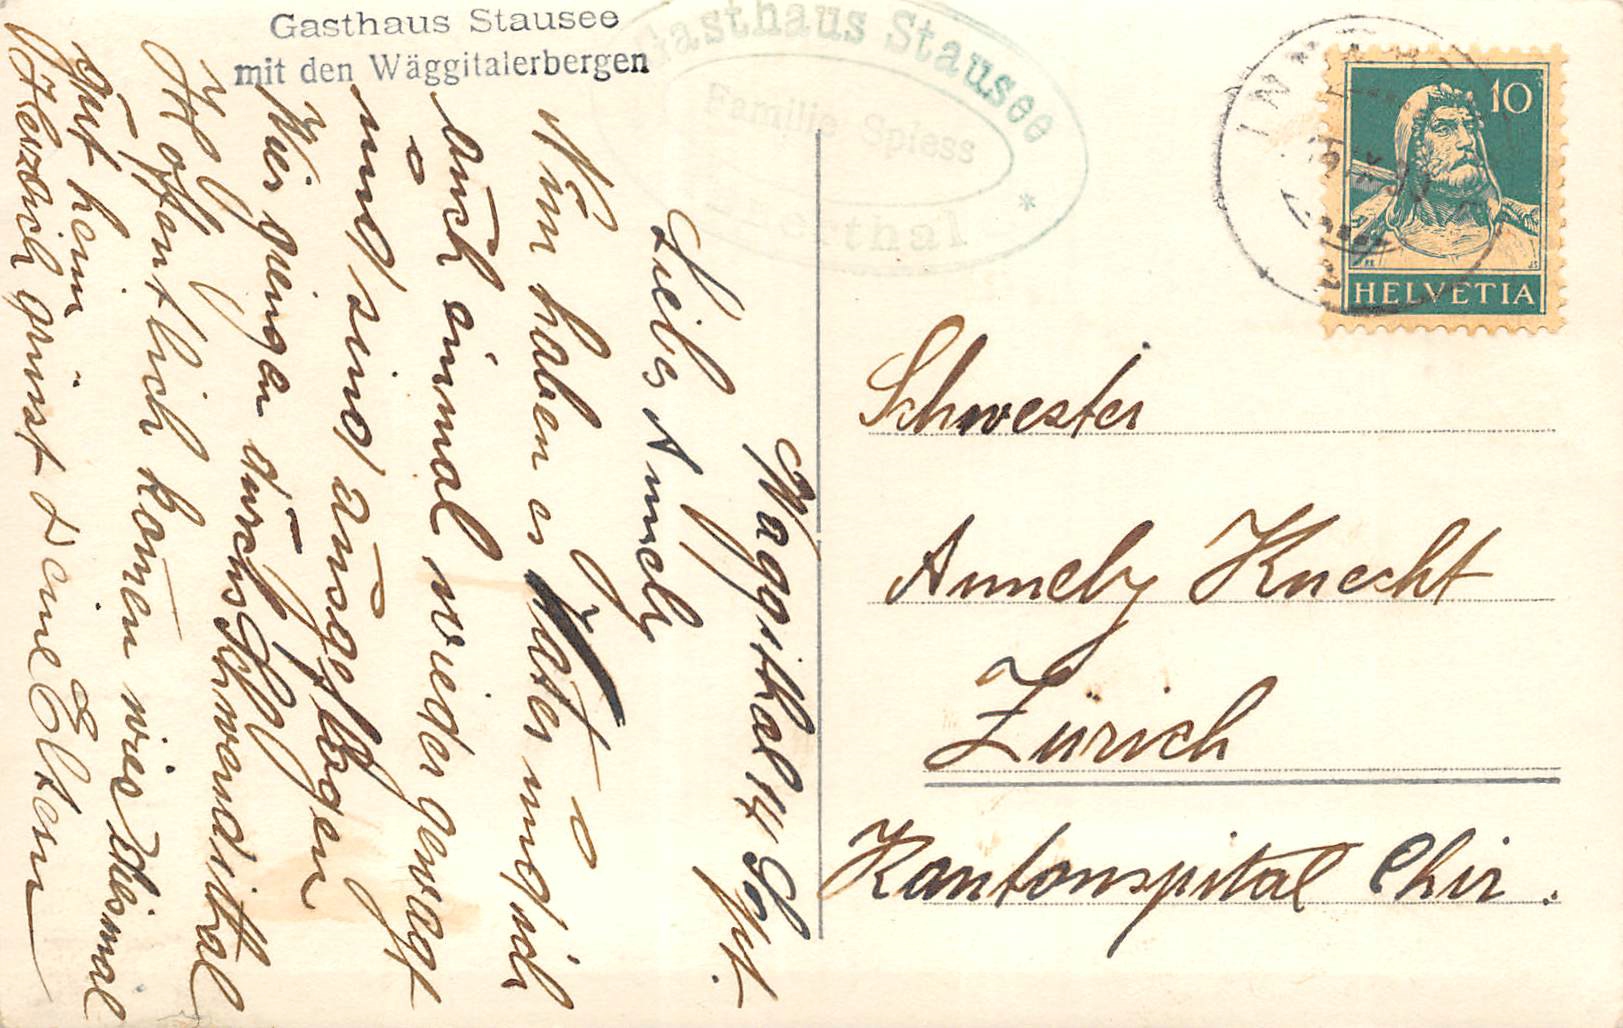 Gasthaus Stausee
mit den Wäggitalerbergen
Gasthaus Stausee
Familie Spiess
Innerthal
*
10
HELVETIA
Wäggithal 14 Sept.
Liebs Annely
Nun haben es Vater und ich
auch einmal wieder gewagt
und sind ausgeflogen
Wier giengen durchs Schwendithal
Hoffentlich komen wier diesmal
gut heim
Herzlich grüsst Deine Eltern
Schwester
Annely Knecht
Zürich
Kantonspital Chir.